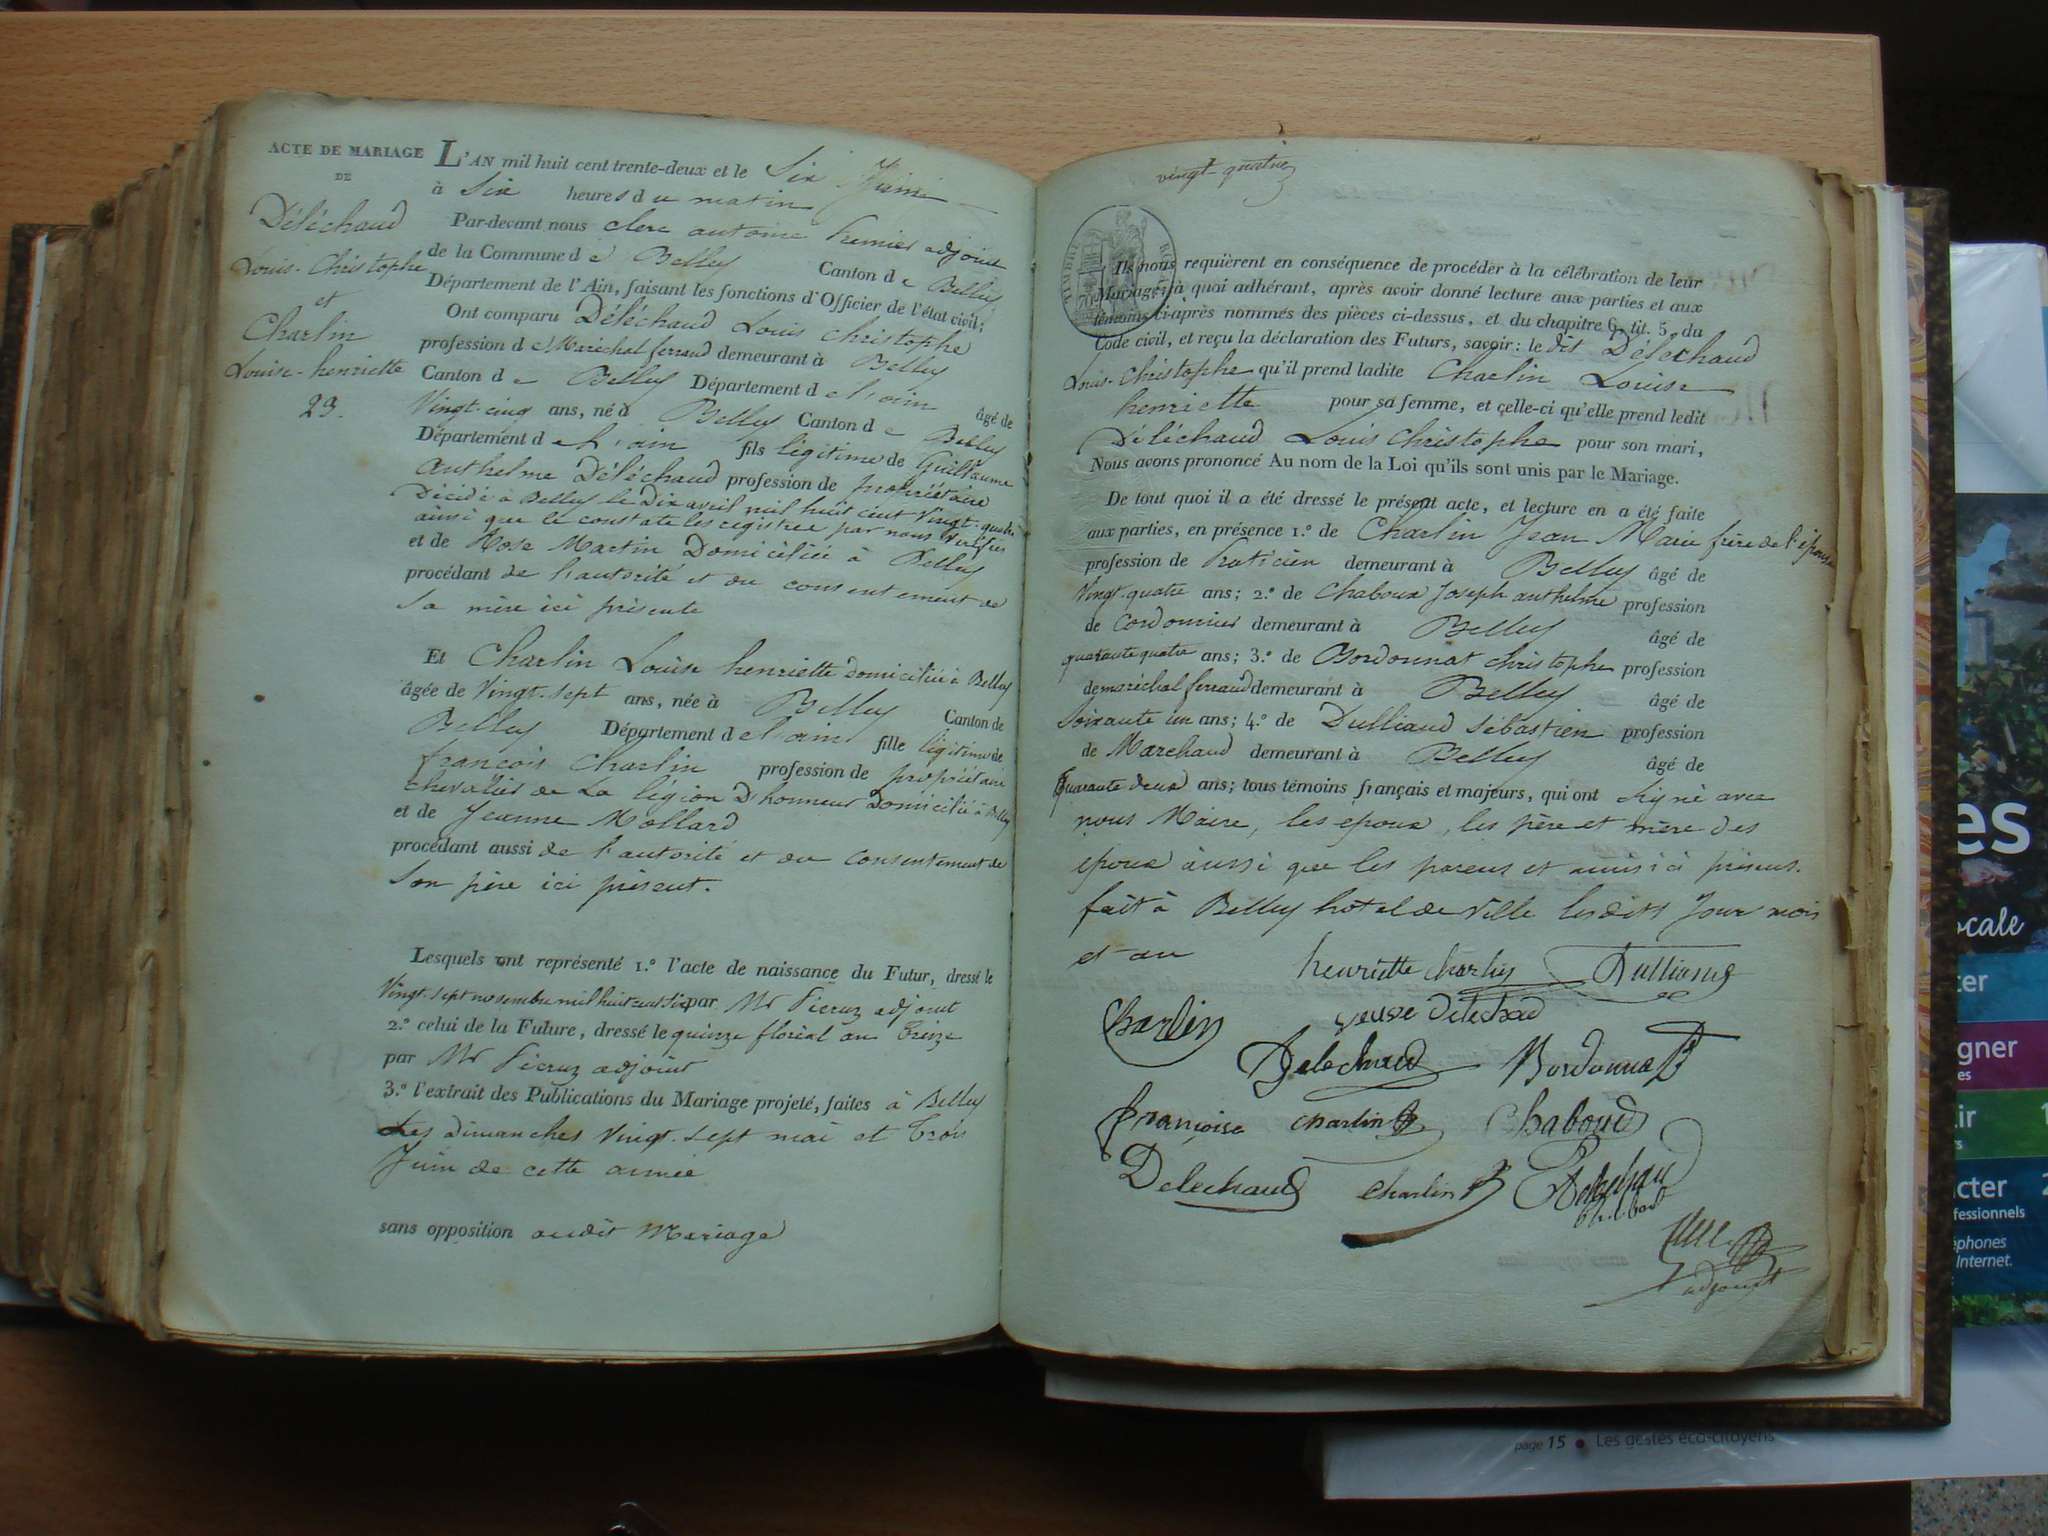 ACTE DE MARIAGE
DE
Déléchaud
Louis-Christophe
et
Charlin
Louise-henriette
23.
L'AN mil huit cent trente-deux et le Six Juin
à Six heures du matin
Par-devant nous clerc antoine Premier adjoint
de la Commune de Belley Canton de Belley
Département de l'Ain, faisant les fonctions d'Officier de l'état civil;
Ont comparu Déléchaud Louis Christophe
profession de Maréchal ferrand demeurant à Belley
Canton de Belley Département de l'ain âgé de
Vingt-cinq ans, né à Belley Canton de Belley
Département de l'ain fils légitime de Guillaume
Anthelme Déléchaud profession de propriétaire
Décédé à Belley le Dix avril mil huit cent Vingt-quatre
ainsi que le constate les registres par nous vérifiés
et de Rose Martin Domiciliée à Belley
procédant de l'autorité et du consentement de
Sa mère ici présente
Et Charlin Louise henriette domiciliée à Belley
âgée de Vingt-sept ans, née à Belley Canton de
Belley Département de l'ain fille légitime de
françois Charlin profession de propriétaire
Chevallier de La légion D'honneur Domicilié à Belley
et de Jeanne Mollard
procédant aussi de l'autorité et du Consentement de
Son père ici présent.
Lesquels ont représenté 1.º l'acte de naissance du Futur, dressé le
Vingt-sept novembre mil huit cent Six par Mr Picruz adjoint
2.º celui de la Future, dressé le quinze floréal an treize
par Mr Picruz adjoint
3.º l'extrait des Publications du Mariage projeté, faites à Belley
Les Dimanches Vingt-sept mai et trois
Juin de cette année
sans opposition audit Mariage
vingt-quatre
TIMBRE
Ils nous requièrent en conséquence de procéder à la célébration de leur
Mariage; à quoi adhérant, après avoir donné lecture aux parties et aux
témoins ci-après nommés des pièces ci-dessus, et du chapitre 6, tit. 5, du
Code civil, et reçu la déclaration des Futurs, savoir: le dit Déléchaud
Louis-Christophe qu'il prend ladite Charlin Louise
henriette pour sa femme, et celle-ci qu'elle prend ledit
Déléchaud Louis Christophe pour son mari,
Nous avons prononcé Au nom de la Loi qu'ils sont unis par le Mariage.
De tout quoi il a été dressé le présent acte, et lecture en a été faite
aux parties, en présence 1.º de Charlin Jean Marie frère de l'épouse
profession de Praticien demeurant à Belley âgé de
Vingt-quatre ans; 2.º de Chaboux Joseph anthelme profession
de Cordonnier demeurant à Belley âgé de
quarante quatre ans; 3.º de Bordonnat christophe profession
de maréchal ferrand demeurant à Belley âgé de
Soixante un ans; 4.º de Dulliaud Sébastien profession
de Marchand demeurant à Belley âgé de
Quarante deux ans; tous témoins français et majeurs, qui ont Signé avec
nous Maire, les époux, les père et mère des
époux ainsi que les parens et amis ici présens.
fait à Belley hotel de Ville Les dits Jour mois
et an
henriette charlin Dulliaud
Charlin veuve Delechaud
Delechaud Bordonnat
françoise charlin Chaboud
Delechaud charlin Delechau
Philibert
adjoint
es
ocale
ter
gner
es
ir 1
rs
cter 2
fessionnels
éphones
Internet.
page 15 • Les gestes éco-citoyens